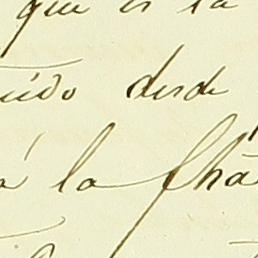 que es la
uido desde
a la fha